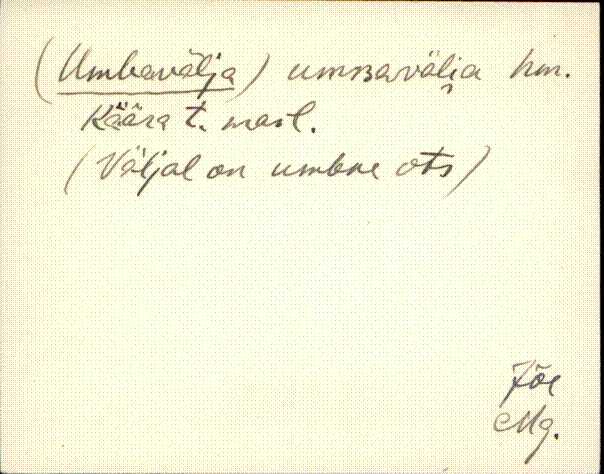 (Umbavälja) umʙavälja hm.
Käära t. maal.
(Väljal on umbne ots)
Jõe
Mg.